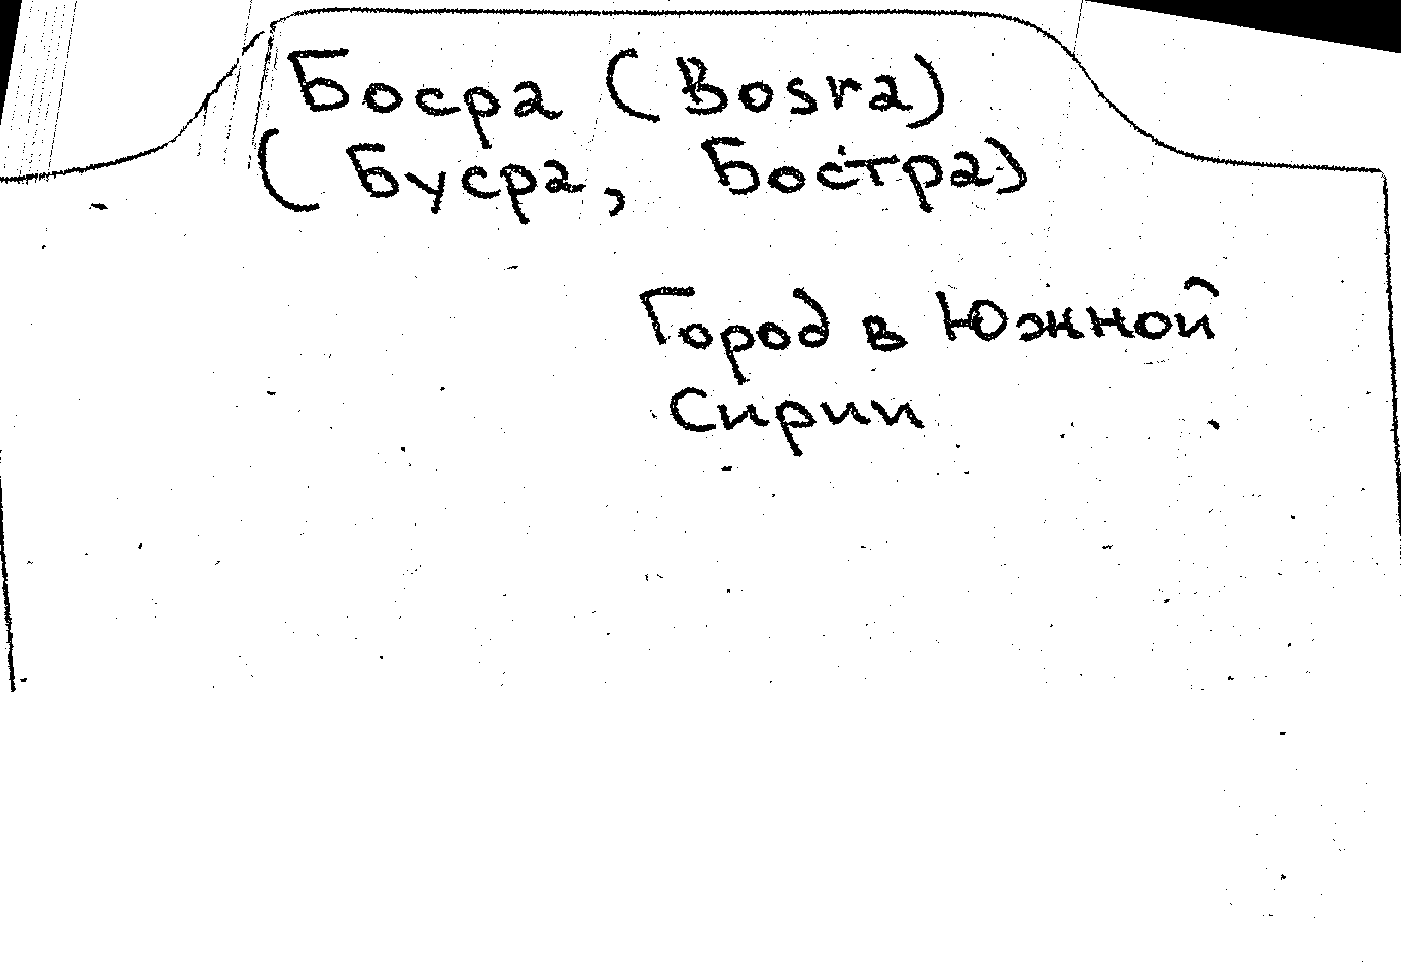 Босра (Bosra)
(Бусра, Бостра)
Город в Южной
Сирии